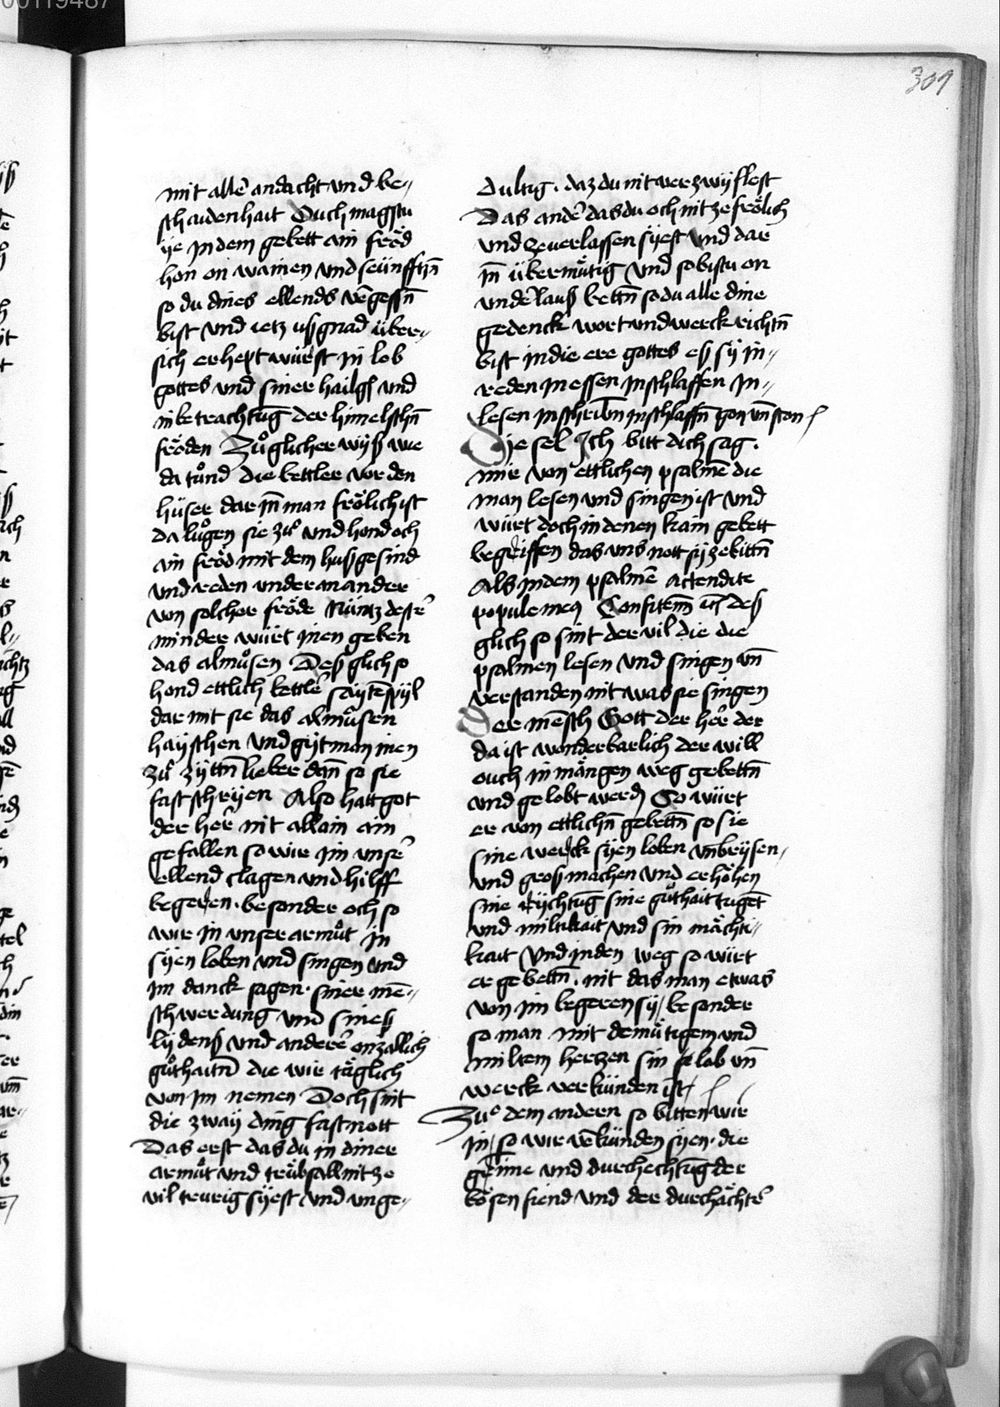 00119487
309
mit allē andacht vnd be-
schaidenhait Ouch magstu
ye in dem gebett ain fröd
hon on wainen vnd seünfftzn̄
so du dines ellends v̄gessn̄
bist vnd ietz uß gnad über-
sich erhept würst in lob
gottes vnd siner hailgē vnd
in betrachtūg der himelschn̄
fröden Zů glicher wyß wie
da tůnd die bettler vor den
hüser dar in̄ man frölich ist
da lůgen sie zů vnd hond och
ain fröd mit dem hußgesind
vnd reden vnder anander
von solcher fröde Nüntz destē
minder würt inen geben
das almůsen Deß glich so
hond ettlich bettlē saytēspyl
dar mit sie das almůsen
hayschen vnd gyt man inen
zů zyttn̄ lieber dan̄ so sie
fast schryen Also hatt got
der her̄ nit allain ain
gefallen so wir im vnsē
ellend clagen vnd hilff
begeren. besonder och so
wir in vnser armůt in
syen loben vnd singen vnd
im danck sagen. siner mē-
schwerdung vnd sines
lydenß vnd anderē onzallich
gůthaitn̄ die wir täglich
von im nemen Doch sint
die zway ding fast nott
Das erst das du in diner
armůt vnd trübsall nit ze
vil trurig syest vnd unge-
dultig. daz du nit verzwyflest
Das andē das du och nit ze frölich
vnd zeuerlassen syest vnd dar
in̄ übermütig vnd so bistu on
vndēlauß bettn̄ so du alle dine
gedenck wort vnd werck richtn̄
bist in die ere gottes eß sy in-
reden in essen in schlaffen in-
lesen in schribn̄ in schlaffn̄ gon vn̄ ston
Die sel Ich bitt dich sag.
mir von ettlichen psalmē die
man lesen vnd singen ist vnd
würt doch in denen kain gebett
begriffen das vns nott sy ze bittn̄
Als in dem psalmē Attendite
popule meꝰ Confitem̄ Deß
glich so sint der vil die die
psalmen lesen vnd singen vn̄
verstanden nit was sie singen
Der mēsch Gott der her̄ der
da ist wonderbarlich der will
ouch in mängen weg gebettn̄
vnd gelobt werdē So würt
er von ettlichn̄ gebettn̄ so sie
sine werck syen loben vn̄ brysen
vnd groß machen vnd erhöhen
sine rychtūg sine gůthait tugēt
vnd miltikait vnd sin mächti-
kait Vnd in den weg so würt
er gebettn̄. nit das man etwas
von im begeren sy besonder
so man mit demütigem vnd
miltem hertzen sin lob vn̄
werck verkünden ist
Zů dem andern so bitten wir
in so wir v̄künden syen. die
grime vnd durchechtūg der
bösen fiend vnd der durchächtē